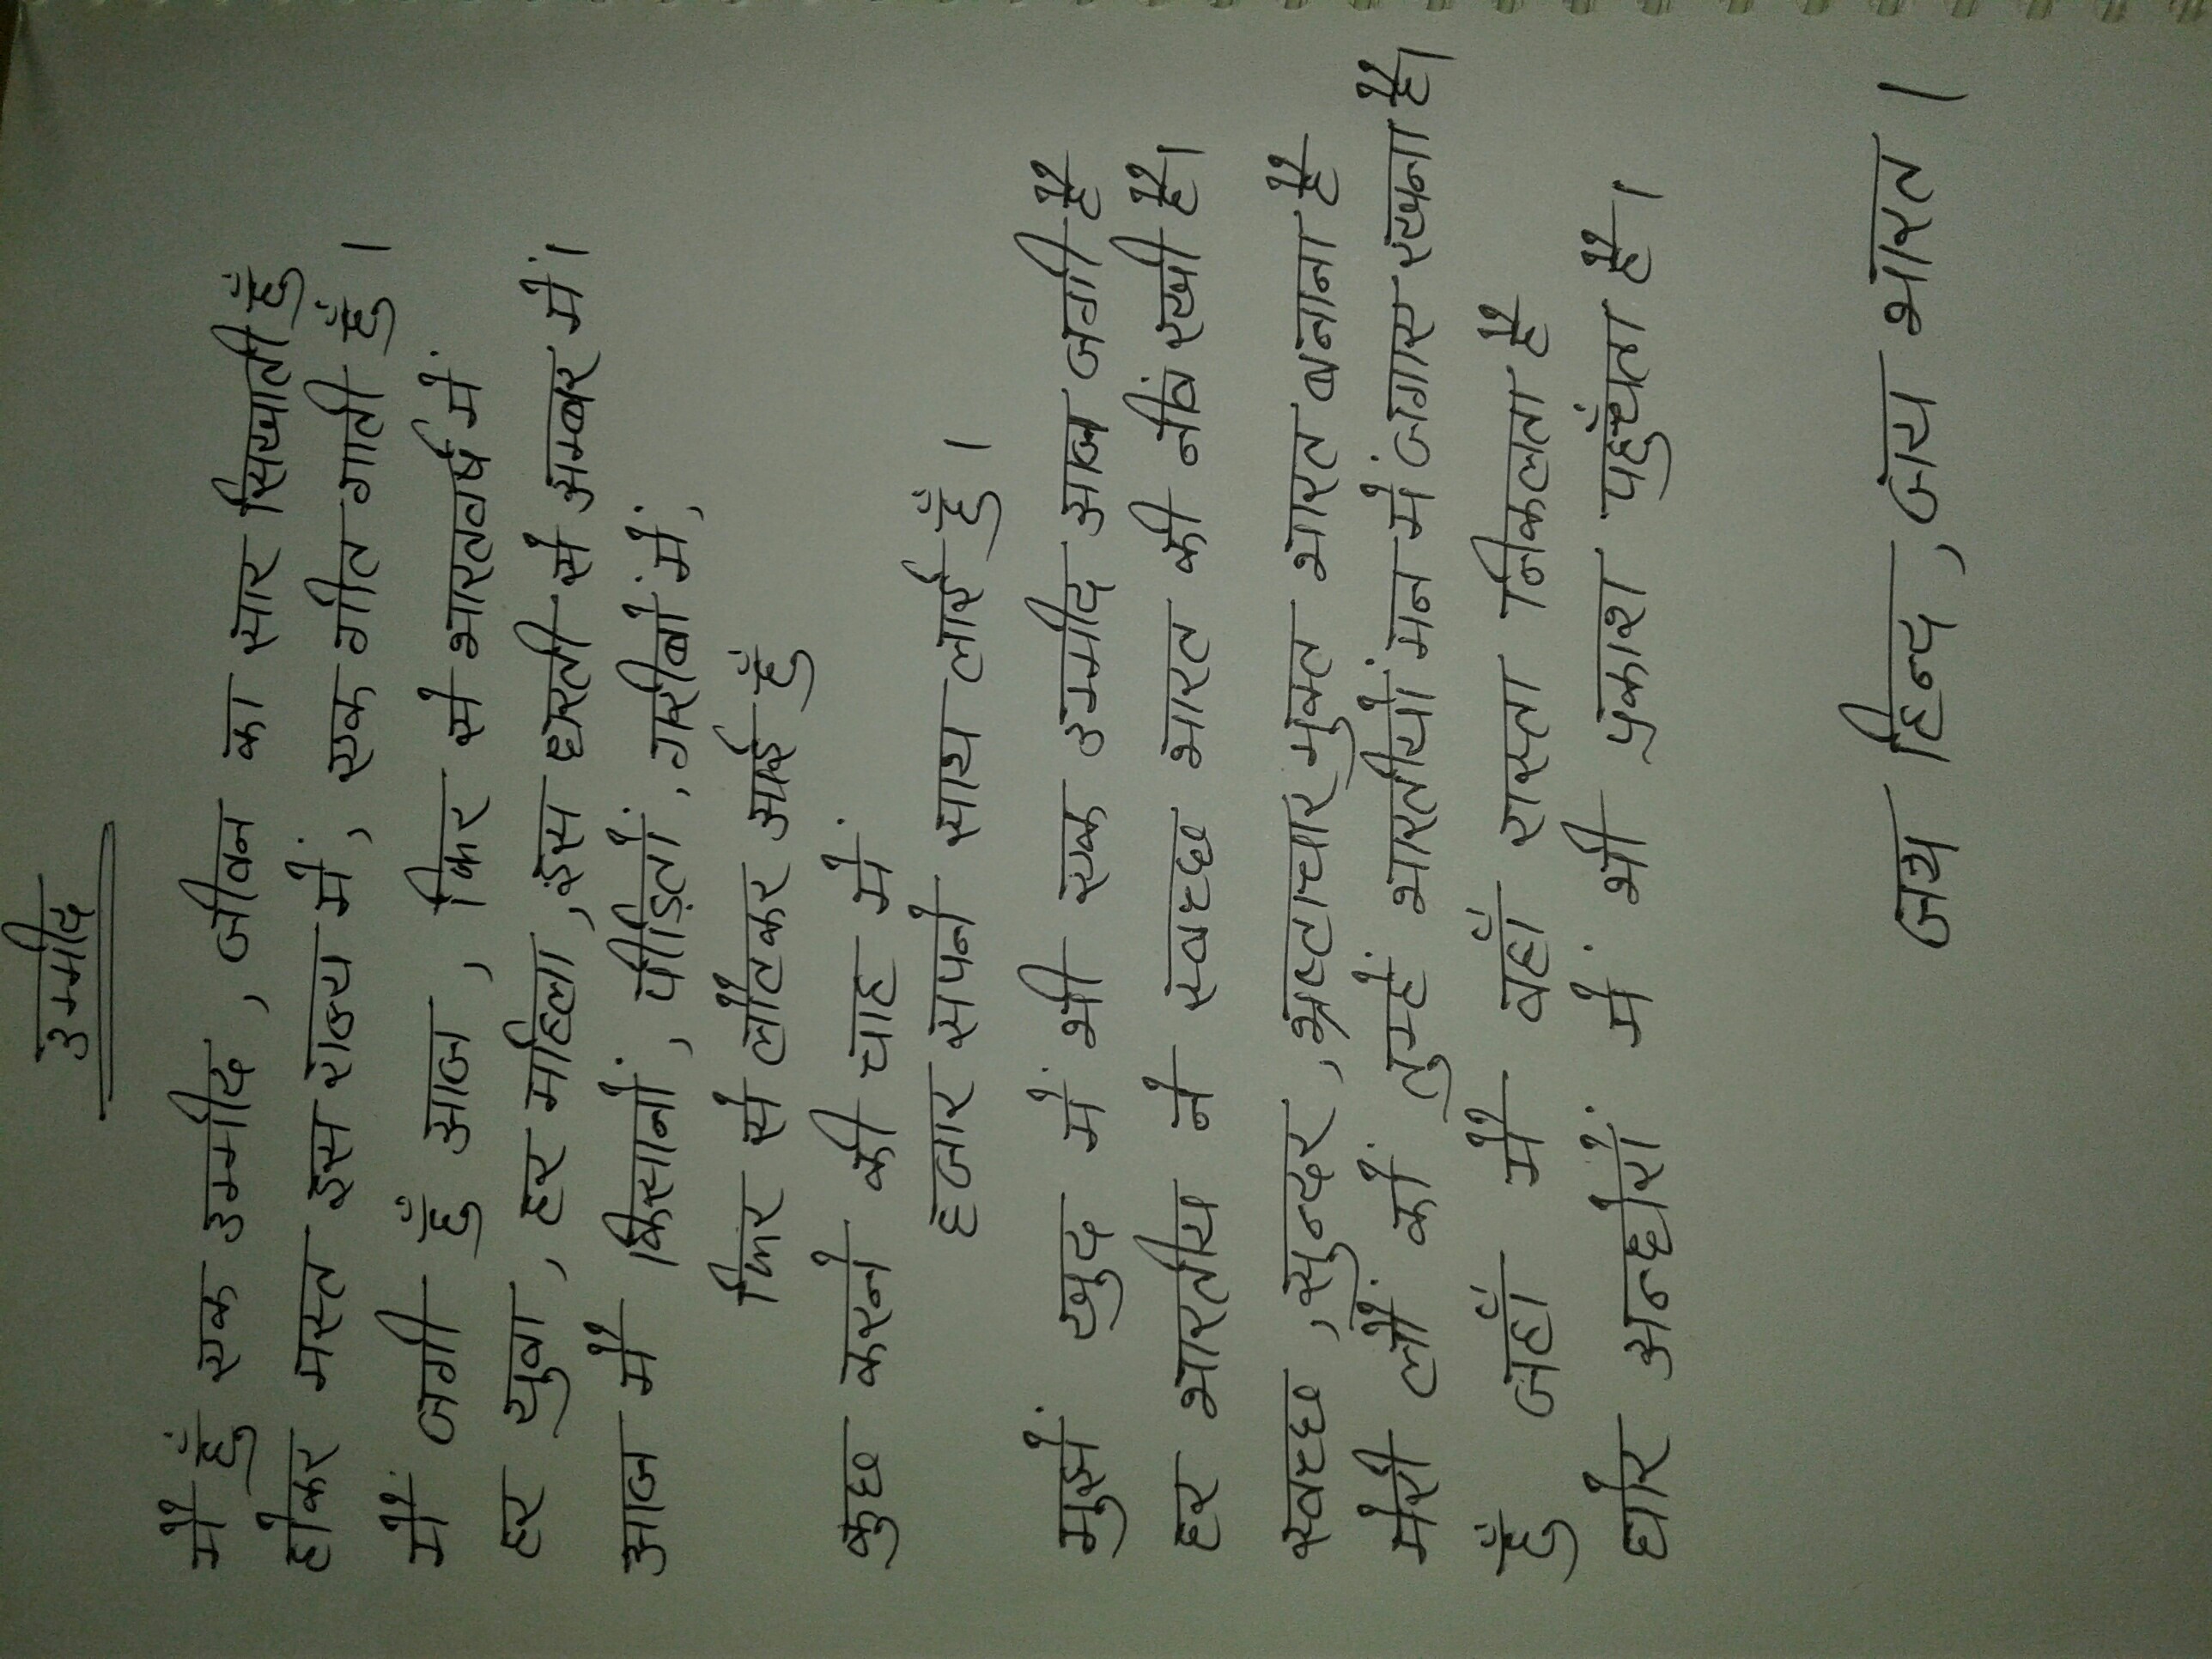 उम्मीद
मैं हूँ एक उम्मीद, जीवन का सार सिखाती हूँ
होकर मस्त इस राज्य में, एक गीत गाती हूँ।
मैं जगी हूँ आज, फिर से भारतवर्ष में
हर युवा, हर महिला, इस धरती से अम्बर में।
आज मैं किसानों, पीड़ितों, गरीबों में,
फिर से लौटकर आई हूँ
कुछ करने की चाह में
हजार सपने साथ लाई हूँ।
मुझमें खुद में भी एक उम्मीद आज जगी है
हर भारतीय ने स्वच्छ भारत की नींव रखी है।
स्वच्छ, सुन्दर, भ्रष्टाचार मुक्त भारत बनाना है
मेरी लौं कों तुम्हें भारतीयों मन में जगाए रखना है।
हूँ जहाँ मैं वहाँ रास्ता निकलता है
घोर अन्धेरों में भी प्रकाश पहुँचता है।
जय हिन्द, जय भारत।